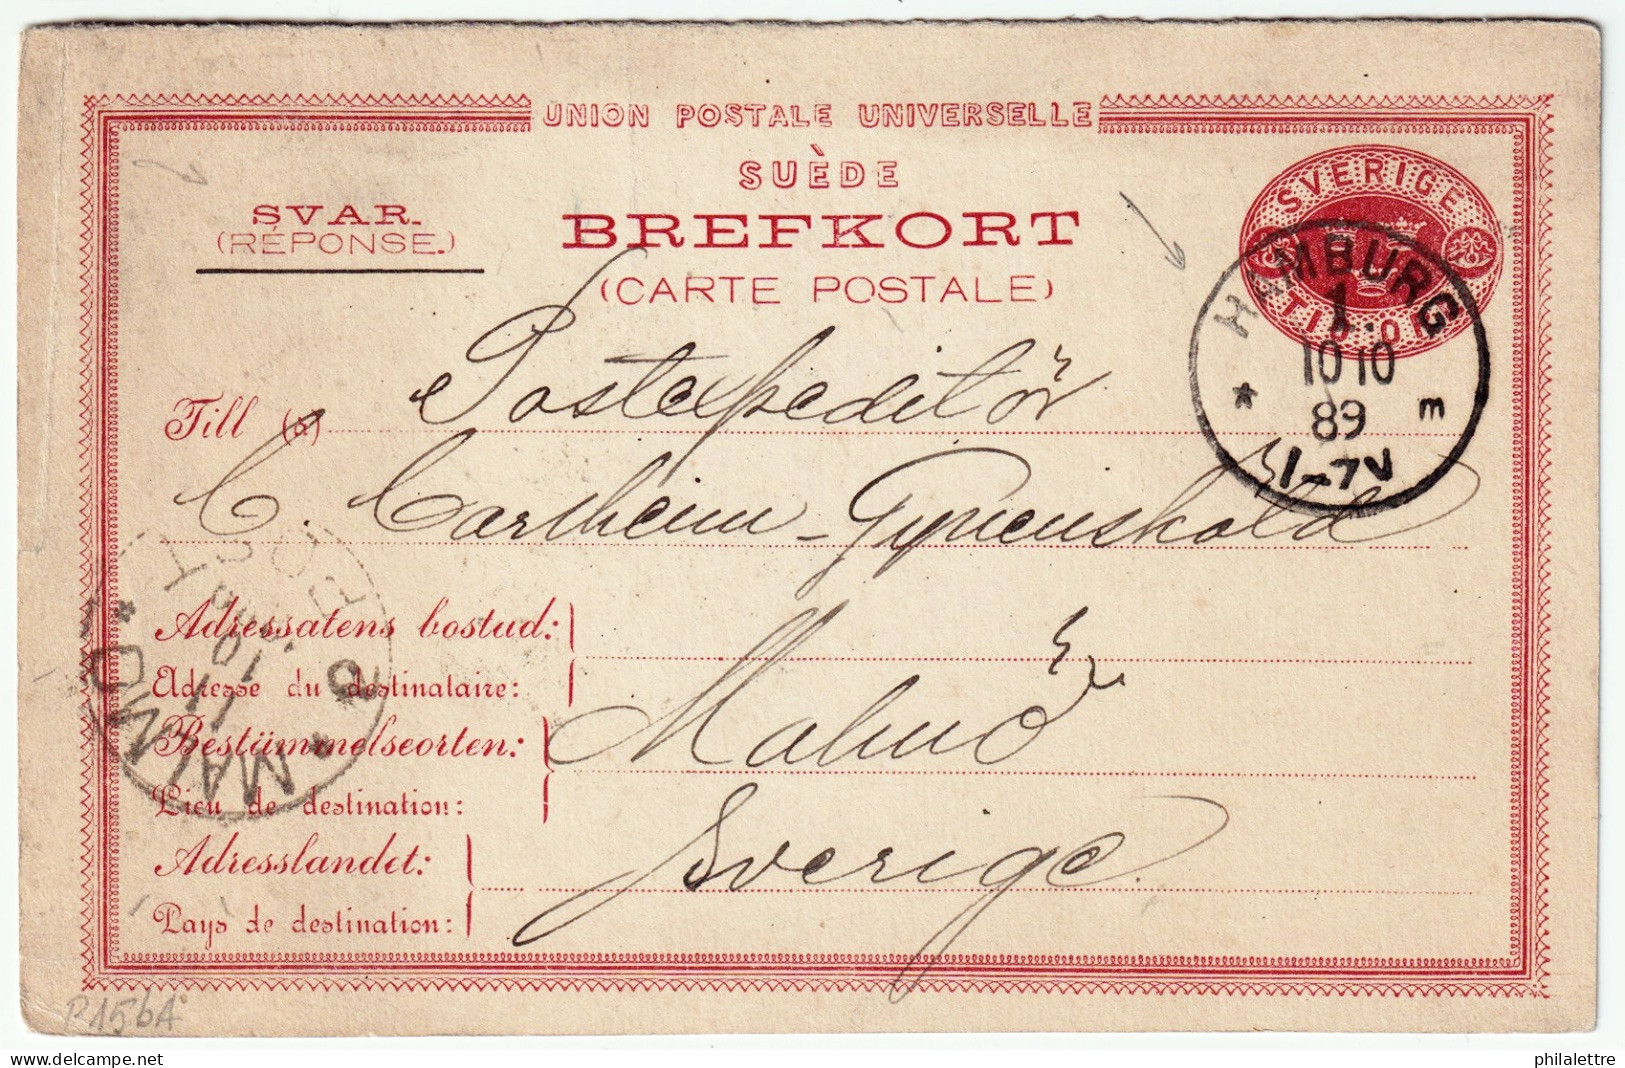 UNION POSTALE UNIVERSELLE
SUÈDE
SVAR.
(RÉPONSE.)
BREFKORT
(CARTE POSTALE)
SVERIGE
TIO ÖR
HAMBURG
1.
10 10
89
1-7V
Till (à)
Postexpeditör
C. Carlheim-Gyllenskold
Adressatens bostad:
Adresse du destinataire:
Bestämmelseorten:
Malmö
Lieu de destination:
Adresslandet:
Sverige.
Pays de destination:
MALMÖ
POST
11
10
P156A
philalettre